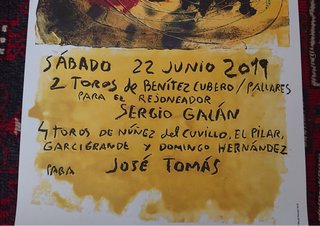 SÁBADO 22 JUNIO 2019
2 TOROS de BENÍTEZ CUBERO / PALLARES
PARA EL REJONEADOR
SERGIO GALÁN
4 TOROS DE NÚÑEZ del CUVILLO, EL PILAR,
GARCIGRANDE Y DOMINGO HERNÁNDEZ
PARA JOSÉ TOMÁS